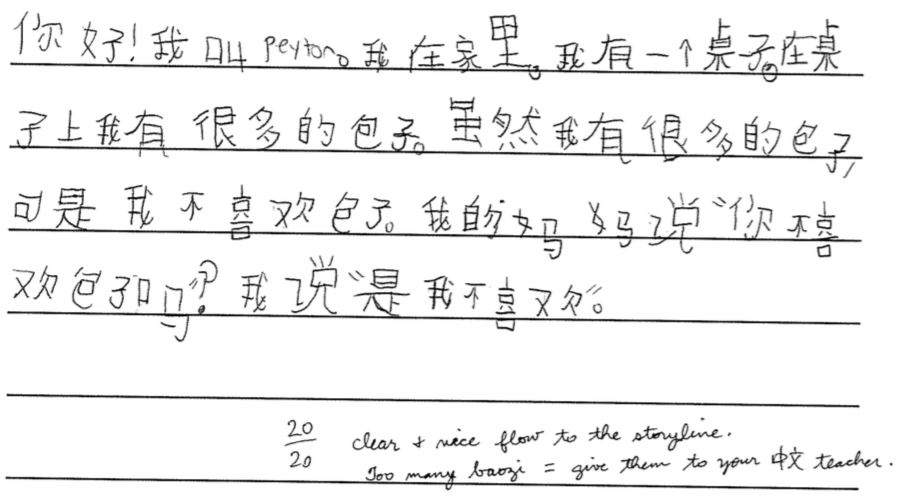 你好!我叫peyton。我在家里。我有一个桌子。在桌
子上我有很多的包子。虽然我有很多的包子,
可是我不喜欢包子。我的妈妈说“你不喜
欢包子吗”?我说“是我不喜欢”。
20
20
clear & nice flow to the storyline.
Too many baozi = give them to your 中文 teacher.